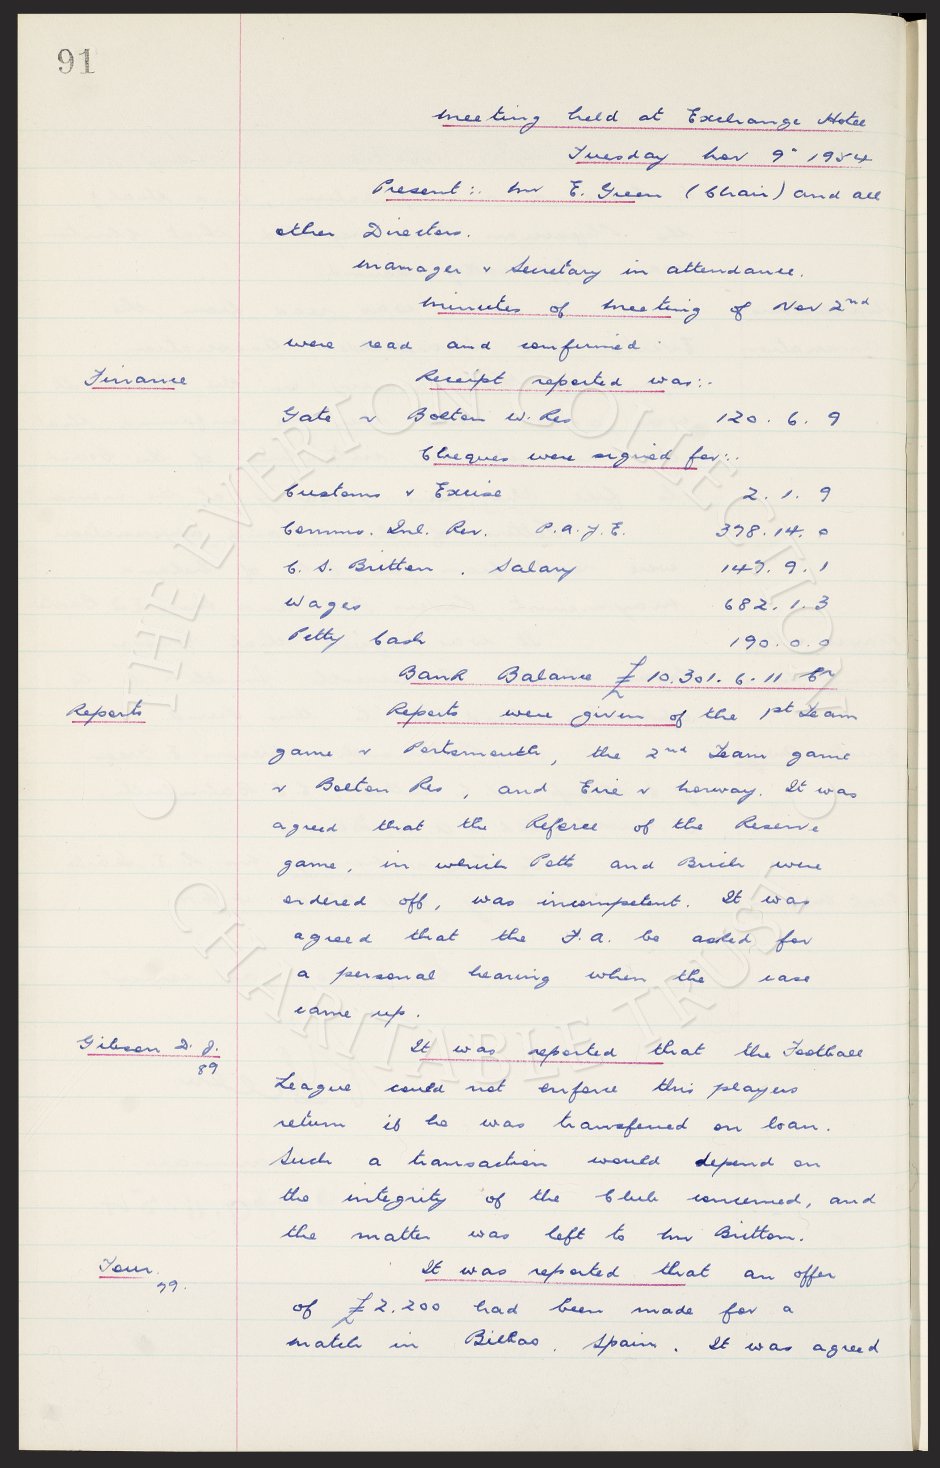 91
Meeting held at Exchange Hotel
Tuesday Nov 9" 1954
Present:. Mr E. Green (Chair) and all
other Directors.
Manager & Secretary in attendance.
Minutes of meeting of Nov 2nd
were read and confirmed.
Finance
Receipt reported was:.
Gate v Bolton W. Res 120. 6. 9
Cheques were signed for:.
Customs & Excise 2. 1. 9
Commrs. Inl. Rev. P.A.Y.E. 378. 14. 0
C. S. Britton. Salary 147. 9. 1
Wages 682. 1. 3
Petty Cash 190. 0. 0
Bank Balance £10,301. 6. 11 Cr
Reports
Reports were given of the 1st Team
game v Portsmouth, the 2nd Team game
v Bolton Res, and Eire v Norway. It was
agreed that the Referee of the Reserve
game, in which Potts and Birch were
ordered off, was incompetent. It was
agreed that the F.A. be asked for
a personal hearing when the case
came up.
Gibson D. J.
89
It was reported that the Football
League could not enforce this players
return if he was transferred on loan.
Such a transaction would depend on
the integrity of the Club concerned, and
the matter was left to Mr Britton.
Tour.
79.
It was reported that an offer
of £2,200 had been made for a
match in Bilbao, Spain. It was agreed
© THE EVERTON COLLECTION
CHARITABLE TRUST